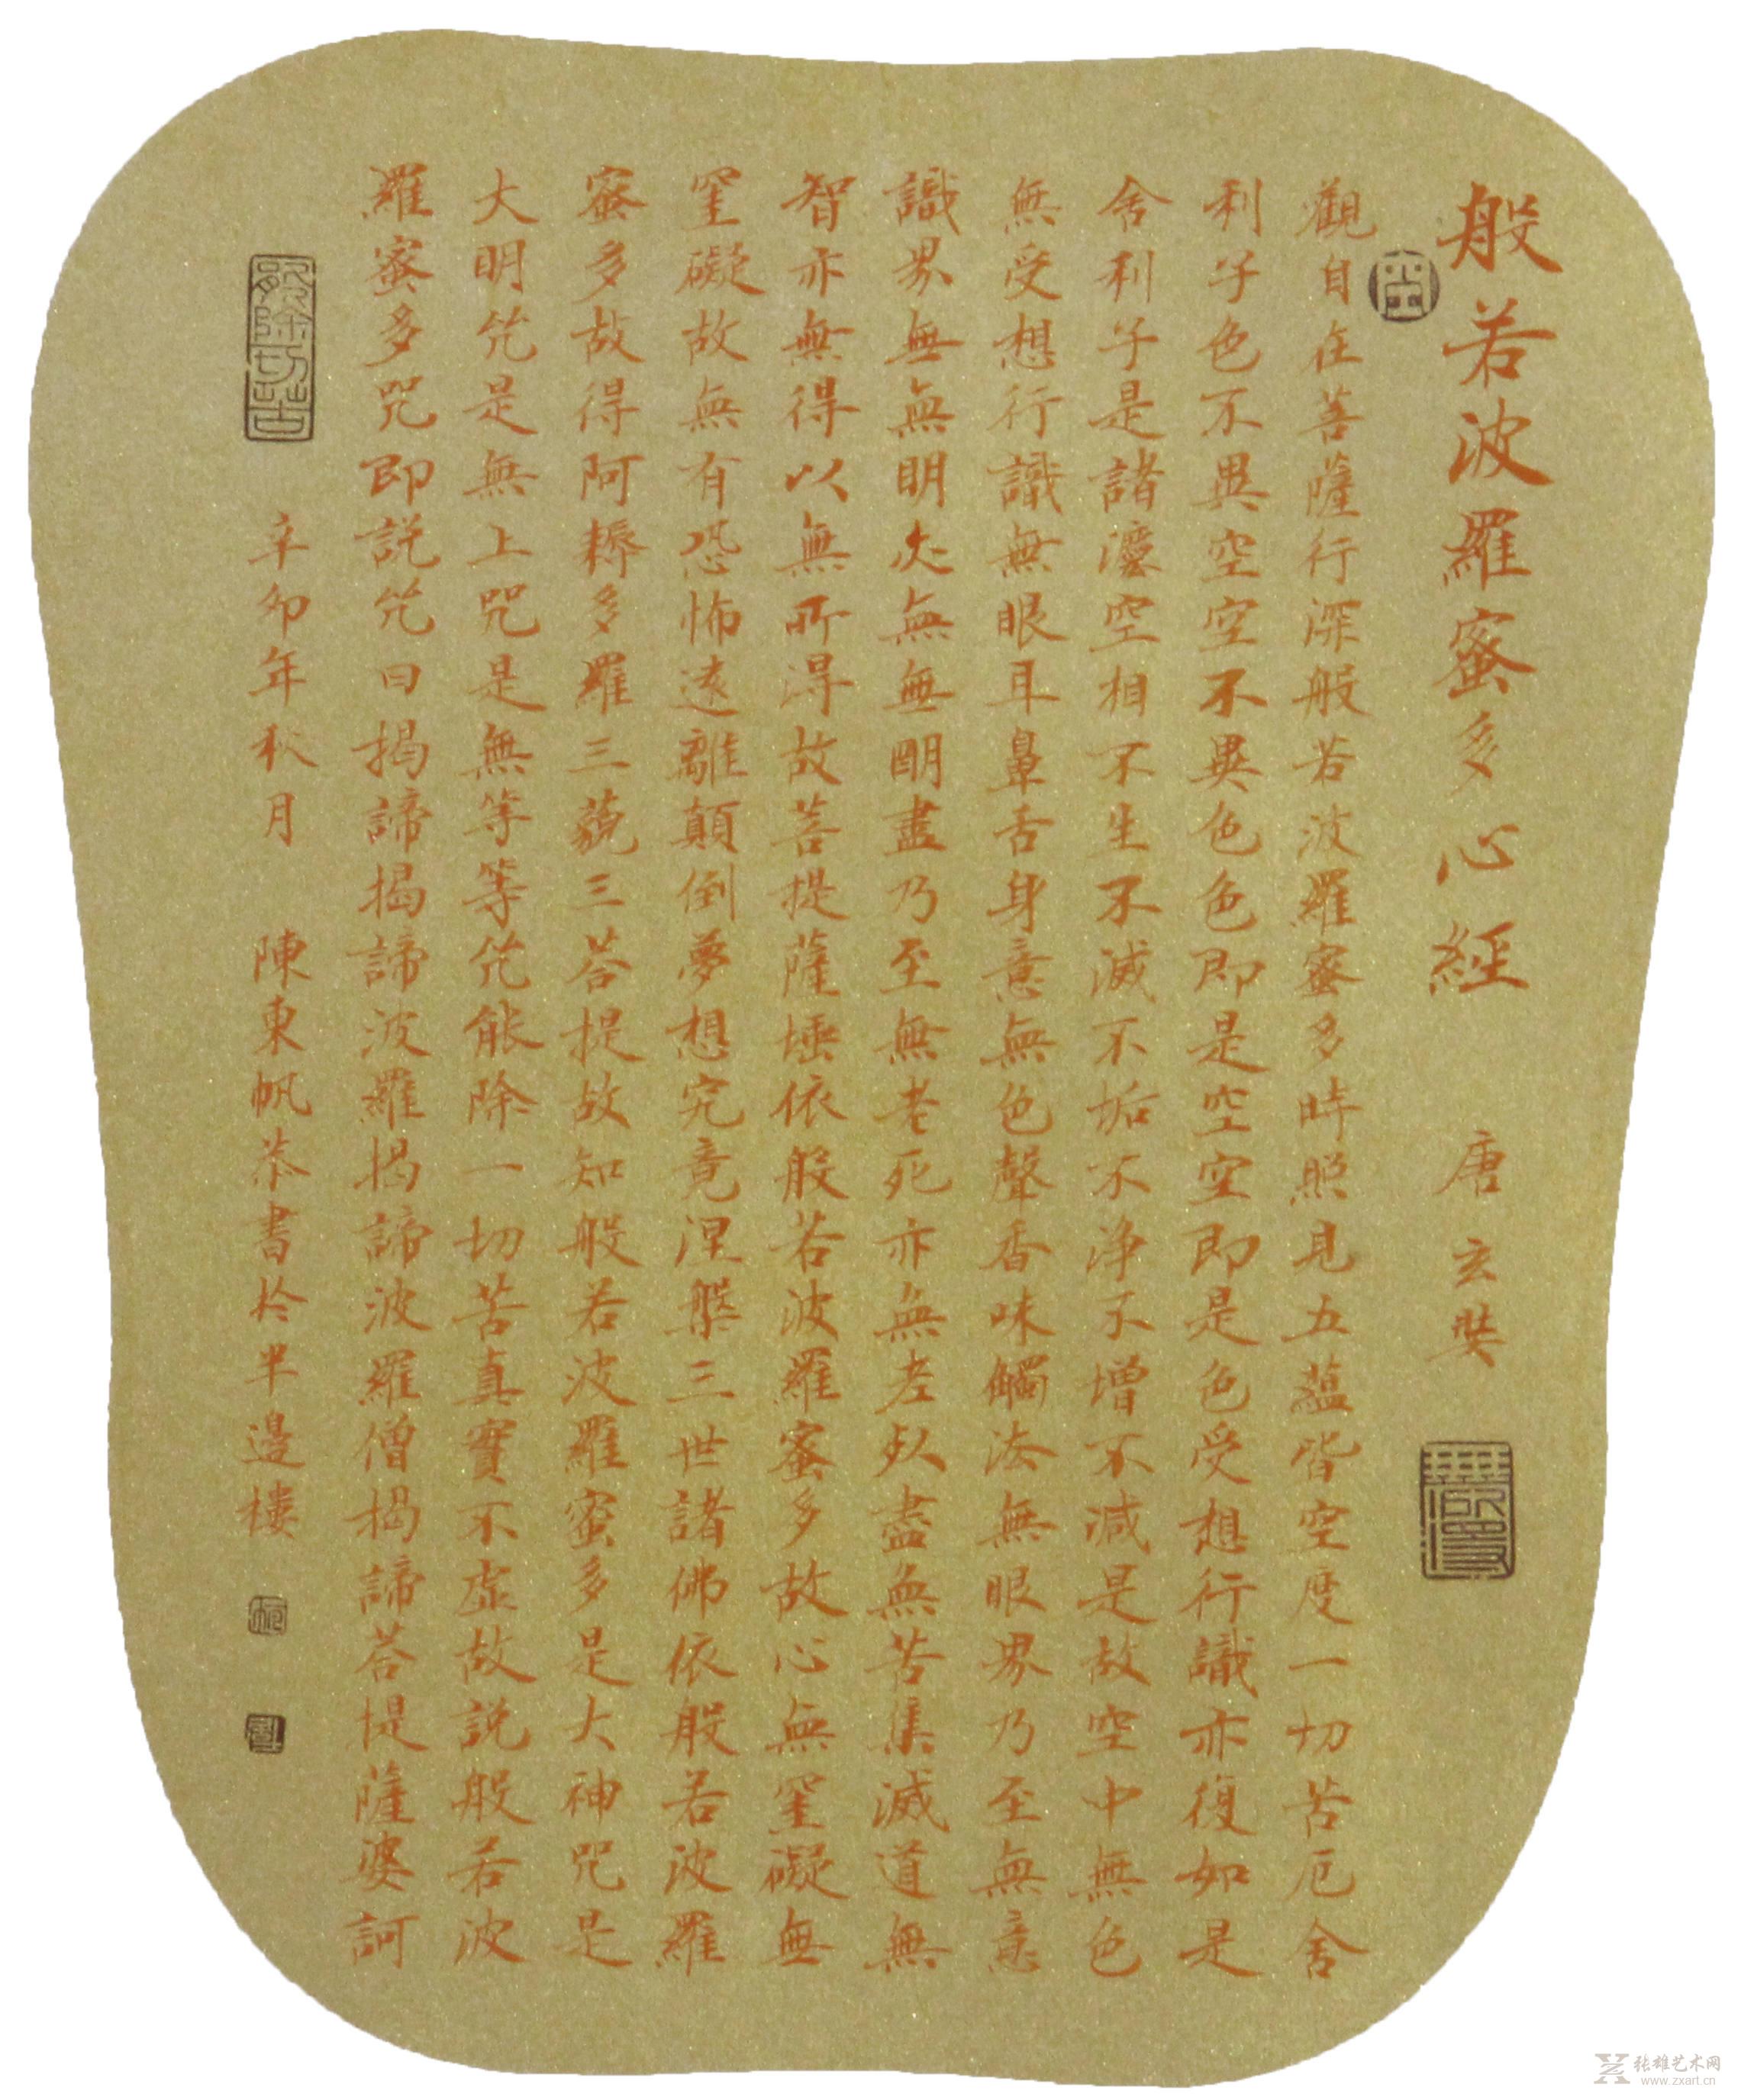 般若波羅蜜多心經 唐玄奘
觀自在菩薩行深般若波羅蜜多時照見五蘊皆空度一切苦厄舍
利子色不異空空不異色色即是空空即是色受想行識亦復如是
舍利子是諸灋空相不生不滅不垢不净不增不減是故空中無色
無受想行識無眼耳鼻舌身意無色聲香味觸法無眼界乃至無意
識界無無明亦無無明盡乃至無老死亦無老死盡無苦集滅道無
智亦無得以無所得故菩提薩埵依般若波羅蜜多故心無罣礙無
罣礙故無有恐怖遠離顛倒夢想究竟涅槃三世諸佛依般若波羅
蜜多故得阿耨多羅三藐三菩提故知般若波羅蜜多是大神咒是
大明咒是無上咒是無等等咒能除一切苦真實不虛故說般若波
羅蜜多咒即説咒曰揭諦揭諦波羅揭諦波羅僧揭諦菩提薩婆訶
辛卯年秋月 陳東帆恭書於半邊樓
空
能除切苦
張雄艺术网
www.zxart.cn